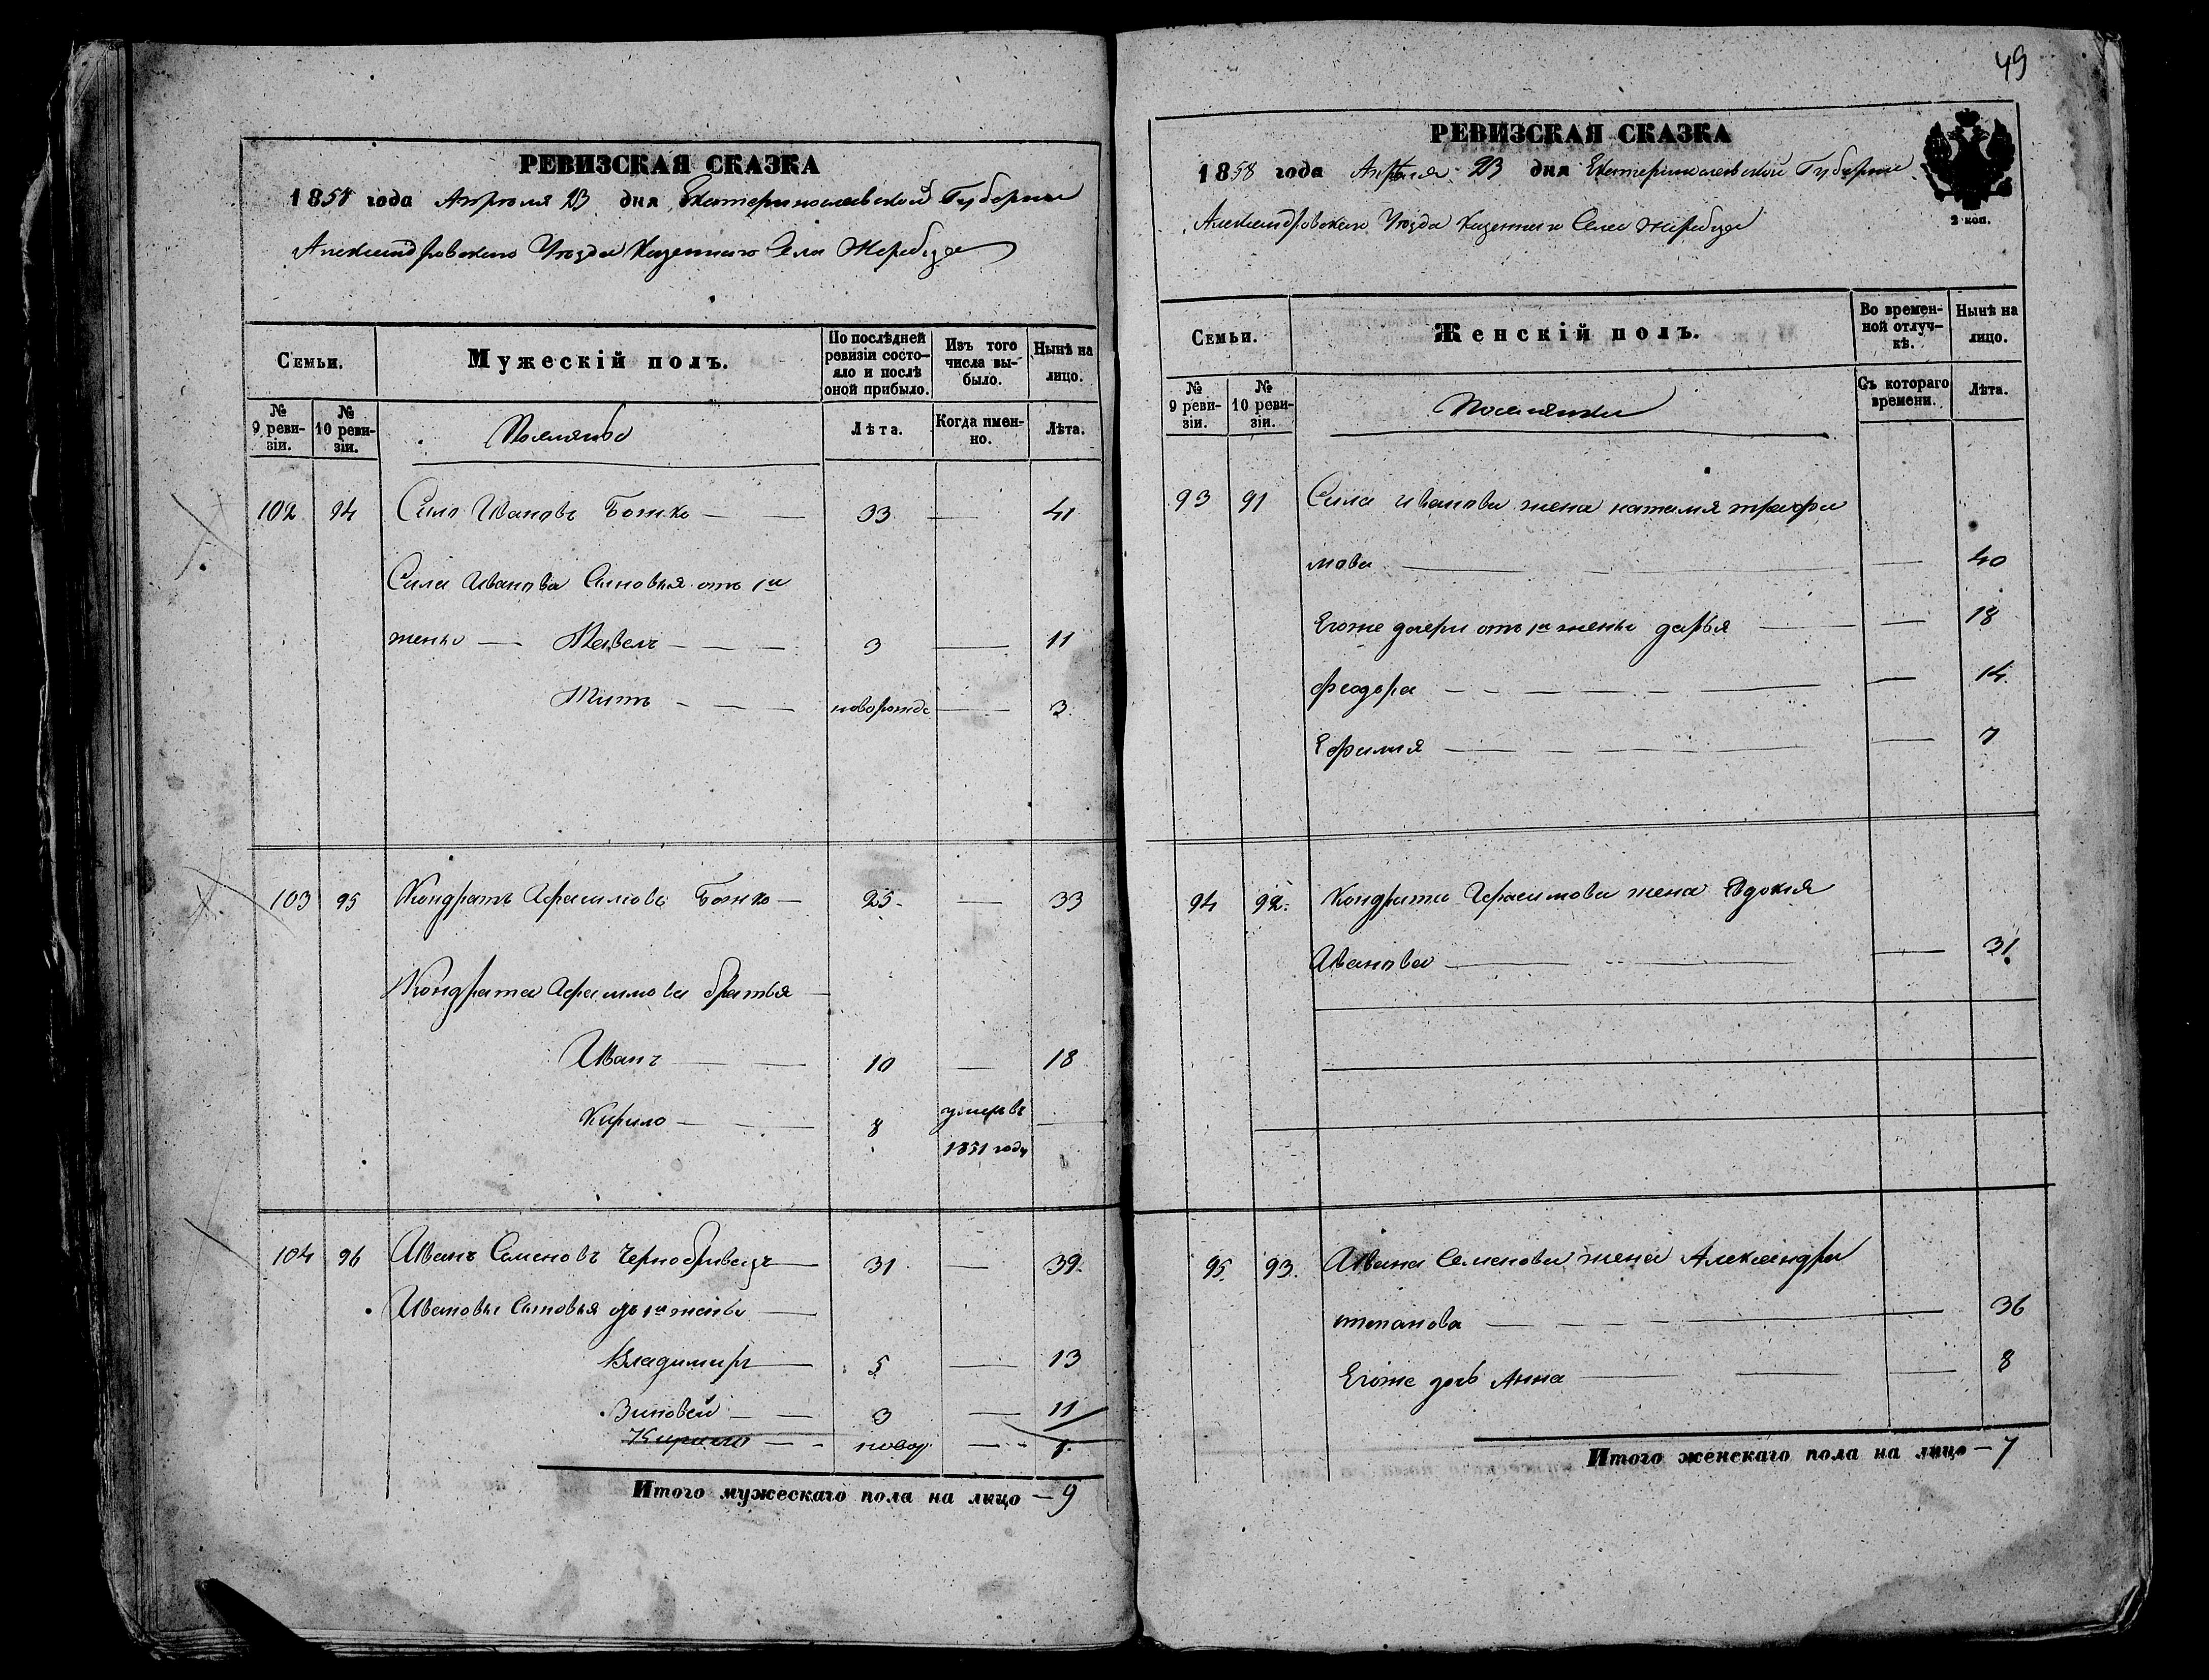 49
РЕВИЗСКАЯ СКАЗКА
1858 года Апреля 23 дня Екатеринославской Губернии
Александровскаго Уезда Казеннаго Села Жеребца
Семьи.
Мужескій полъ.
По послѣдней ревизіи состояло и послѣ оной прибыло.
Изъ того числа выбыло.
Нынѣ на лицо.
№ 9 ревизіи.
№ 10 ревизіи.
Поселяне
Лѣта.
Когда именно.
Лѣта.
102 94 Сила Ивановъ Божко — 33 — 41
Силы Иванова Сыновья отъ 1й
жены — Павелъ — 3 — 11
Титъ — новорожде — 3
103 95 Кондратъ Герасимовъ Божко — 25 — 33
Кондрата Герасимова братья —
Иванъ — 10 — 18
Кирило — 8 умеръ въ 1851 году —
104 96 Иванъ Семеновъ Чернобривецъ — 31 — 39
Ивановы Сыновья отъ 1й жены —
Владимиръ — 5 — 13
Зиновей — 3 — 11
Кирило — новор. — 1
Итого мужескаго пола на лицо — 9
РЕВИЗСКАЯ СКАЗКА
1858 года Апреля 23 дня Екатеринославской Губернии
Александровскаго Уезда Казеннаго Села Жеребца
2 коп.
Семьи.
Женскій полъ.
Во временной отлучкѣ.
Нынѣ на лицо.
№ 9 ревизіи.
№ 10 ревизіи.
Поселянки
Съ котораго времени.
Лѣта.
93 91 Сила Иванова жена наталия трофи
мова — — 40
Егоже дочери отъ 1й жены дарья — — 18
феодора — — 14
Ефимия — — 7
94 92. Кондрата Герасимова жена Евдокия
Иванова — — 31
95. 93. Ивана Семенова жена Александра
степанова — — 36
Егоже дочь Анна — — 8
Итого женскаго пола на лицо — 7